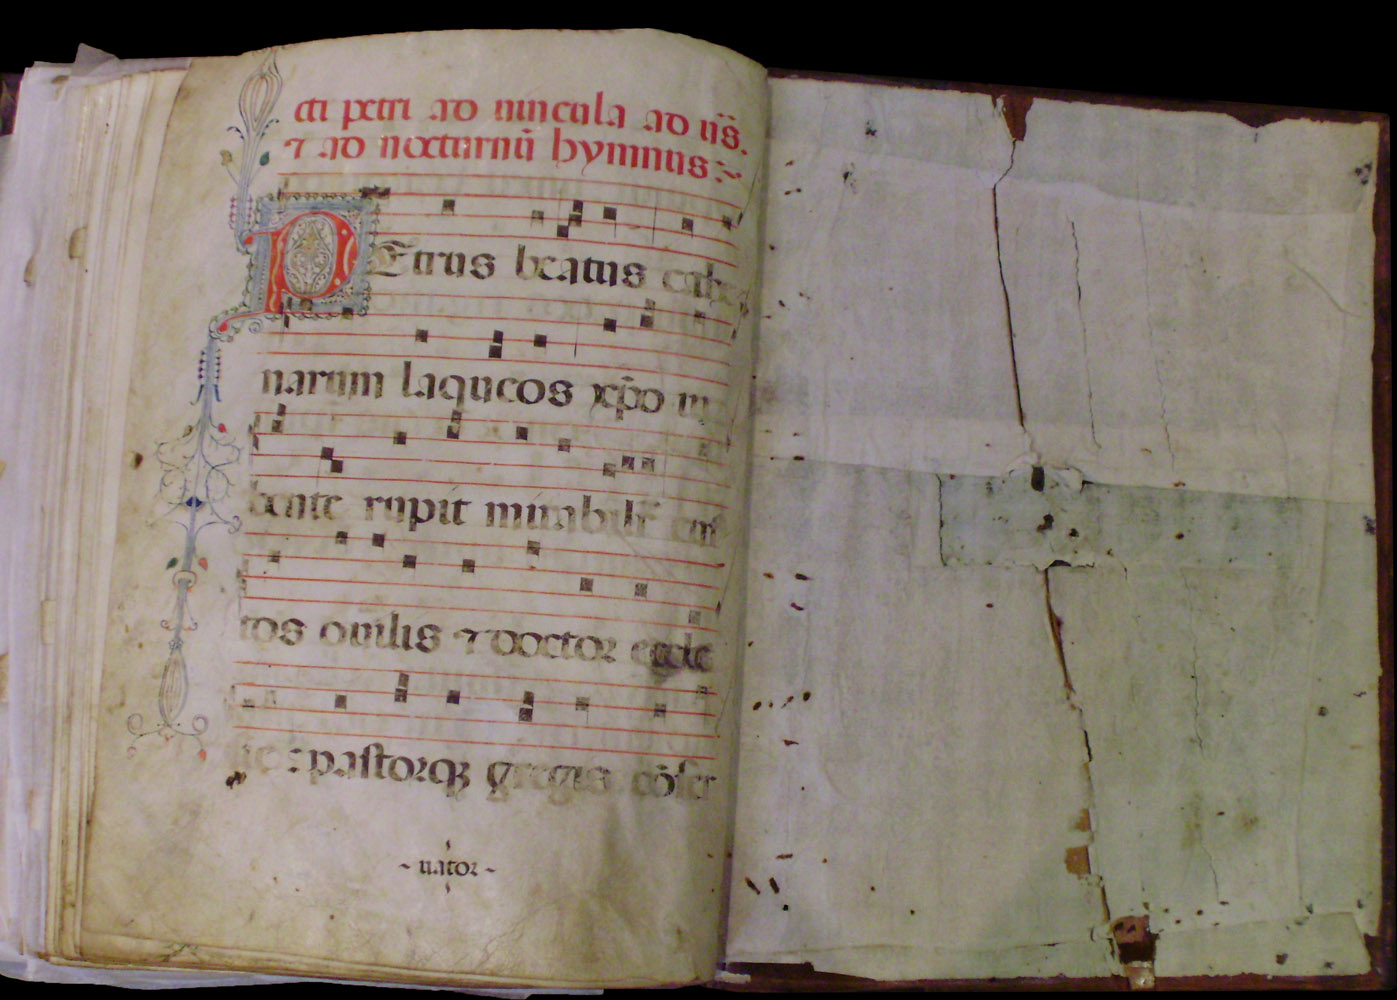 cti petri ad uincula ad us̃.
⁊ ad nocturnũ hymnus:~
PEtrus beatus cathe
narum laqueos xp̃o iu
bente rupit mirabilr̃ cus
tos ouilis ⁊ doctor eccle
sie: pastorqꝫ gregis cõser
~ uator ~